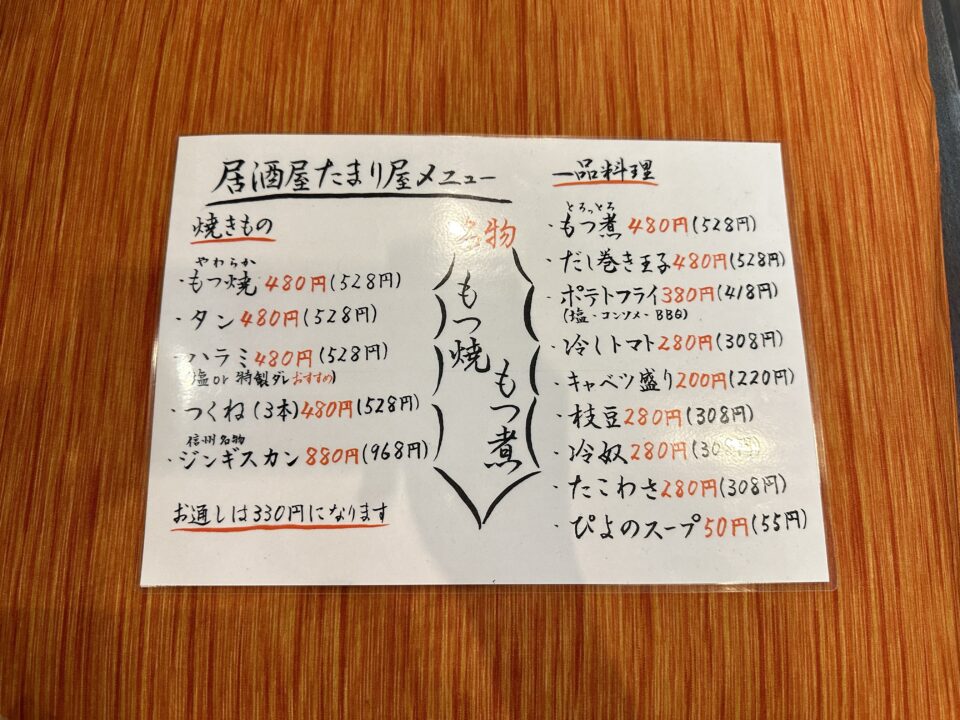 居酒屋たまり屋メニュー
焼きもの
やわらか
・もつ焼 480円(528円)
・タン 480円(528円)
・ハラミ 480円(528円)
(塩or特製ダレおすすめ)
・つくね(3本)480円(528円)
信州名物
・ジンギスカン 880円(968円)
お通しは330円になります
名物
もつ焼
もつ煮
一品料理
とろっとろ
・もつ煮 480円(528円)
・だし巻き玉子480円(528円)
・ポテトフライ380円(418円)
(塩・コンソメ・BBQ)
・冷しトマト280円(308円)
・キャベツ盛り200円(220円)
・枝豆280円(308円)
・冷奴280円(308円)
・たこわさ280円(308円)
・ぴよのスープ50円(55円)